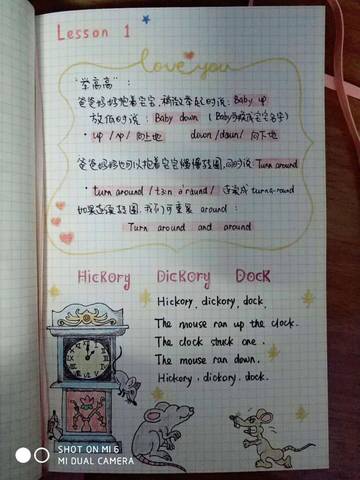 Lesson 1
love you
"举高高":
爸爸妈妈抱着宝宝,稍微举起时说: Baby up
放低时说: Baby down (Baby可换成宝宝名字)
up /ʌp/ 向上地 down /daun/ 向下地
爸爸妈妈也可以抱着宝宝慢慢转圈,同时说: Turn around
turn around /tɜːn ə'raund/ 连读成 turna-round
如果连续转圈,我们可重复 around:
Turn around and around
Hickory Dickory Dock
Hickory, dickory, dock,
The mouse ran up the clock.
The clock struck one.
The mouse ran down.
Hickory, dickory, dock.
SHOT ON MI 6
MI DUAL CAMERA